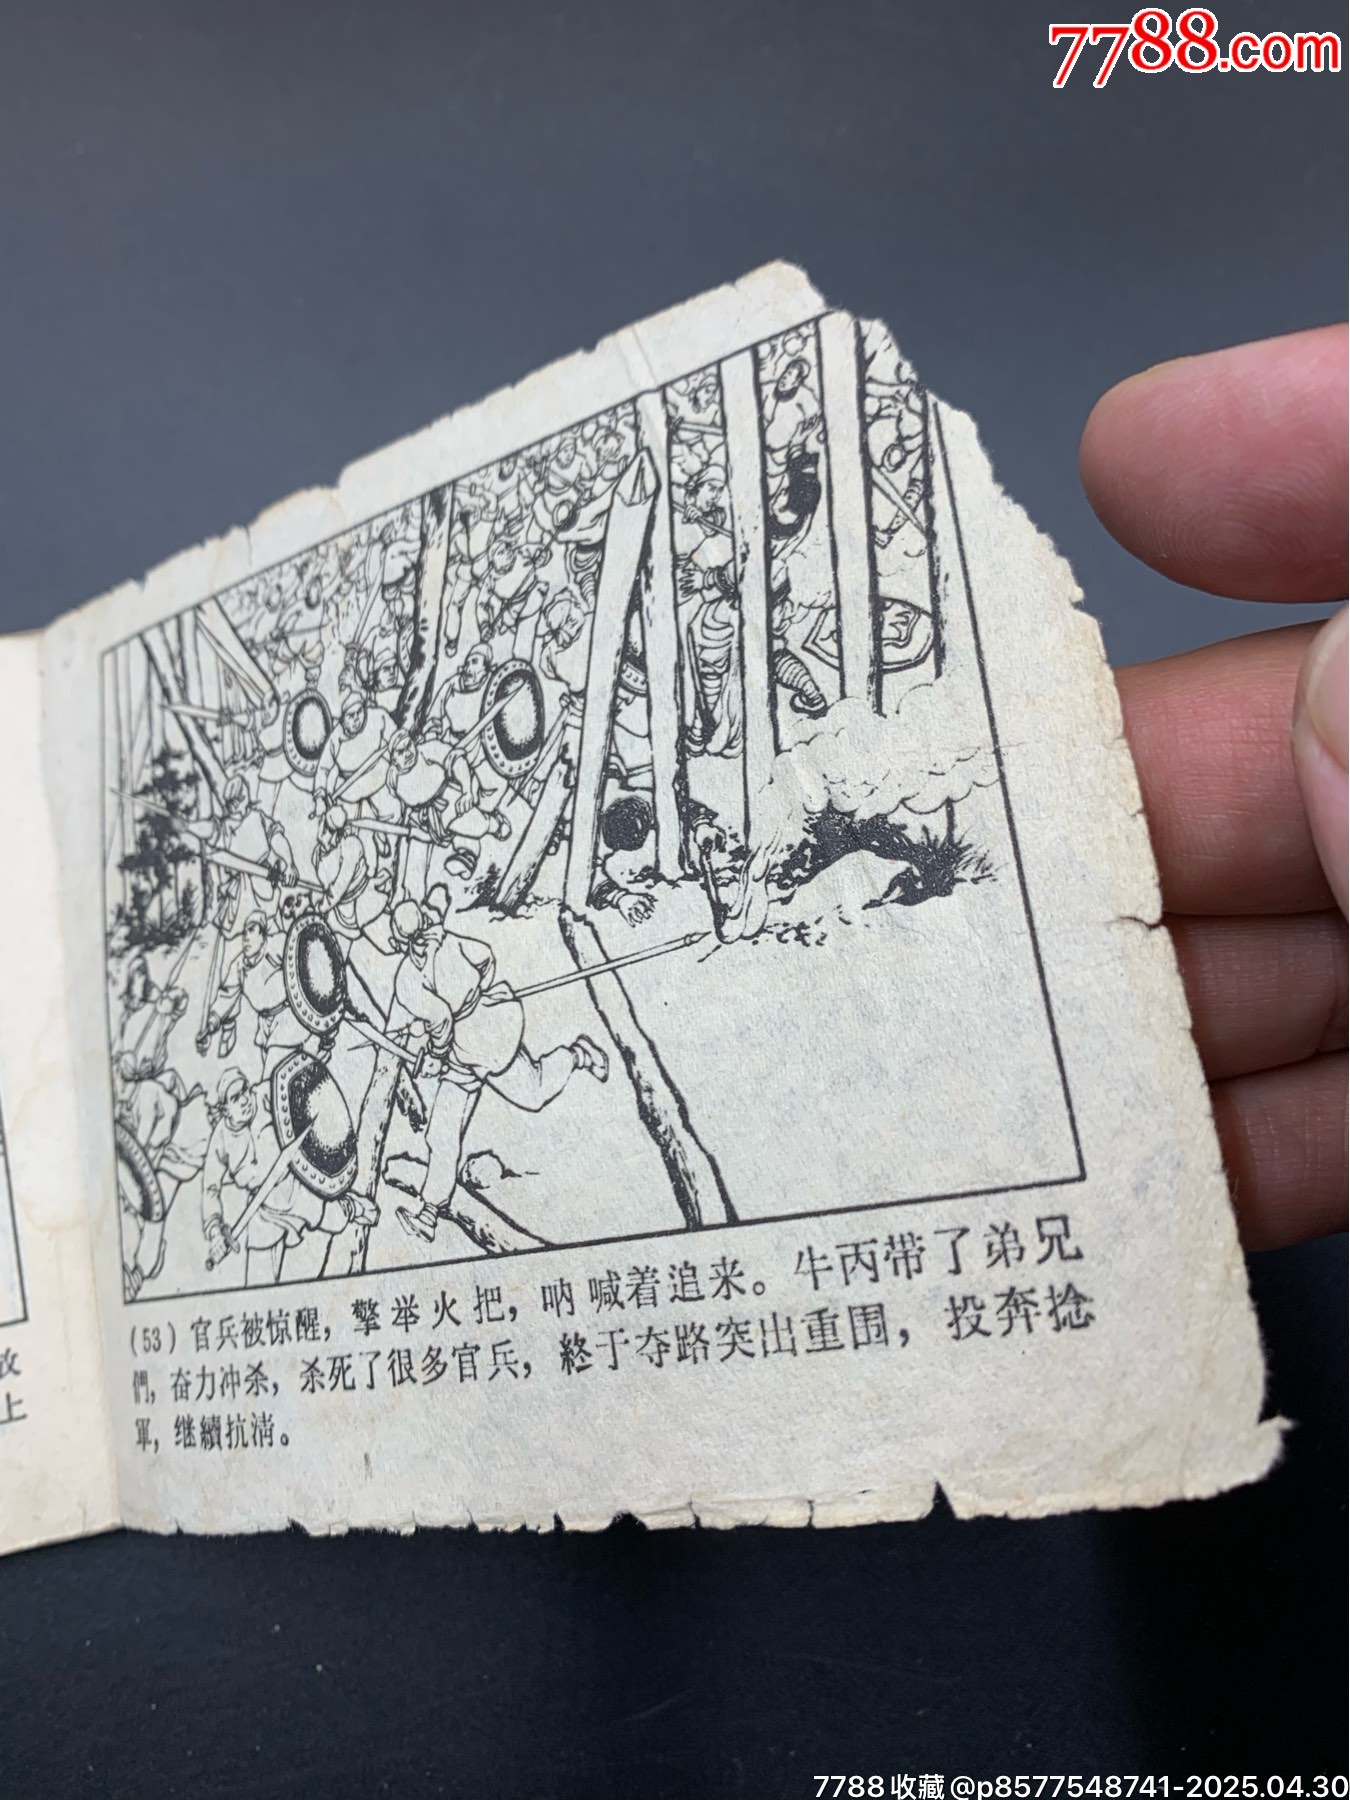 7788.com
(53) 官兵被惊醒，擎举火把，呐喊着追来。牛丙带了弟兄
們，奋力冲杀，杀死了很多官兵，終于夺路突出重围，投奔捻
軍，继續抗清。
上
7788收藏@p8577548741-2025.04.30